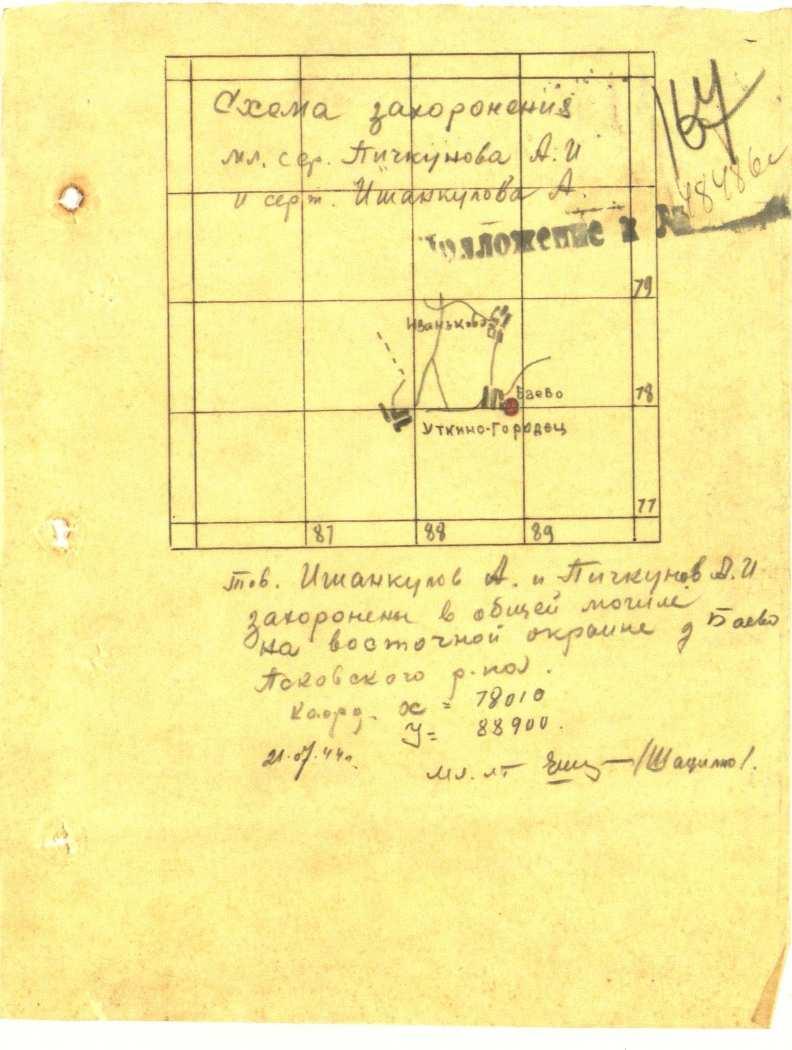 Схема захоронения
167
мл. сер. Пичкунова А.И
и серж. Ишанкулова А.
48486с
Приложение к №
79
Иваньково
Баево
78
Уткино-Городец
77
87 88 89
тов. Ишанкулов А. и Пичкунов А.И
захоронены в общей могиле
на восточной окраине д Баево
Псковского р-на.
Коорд. x = 78010
У= 88900.
21.07.44г.
мл. лт /Шацило/.